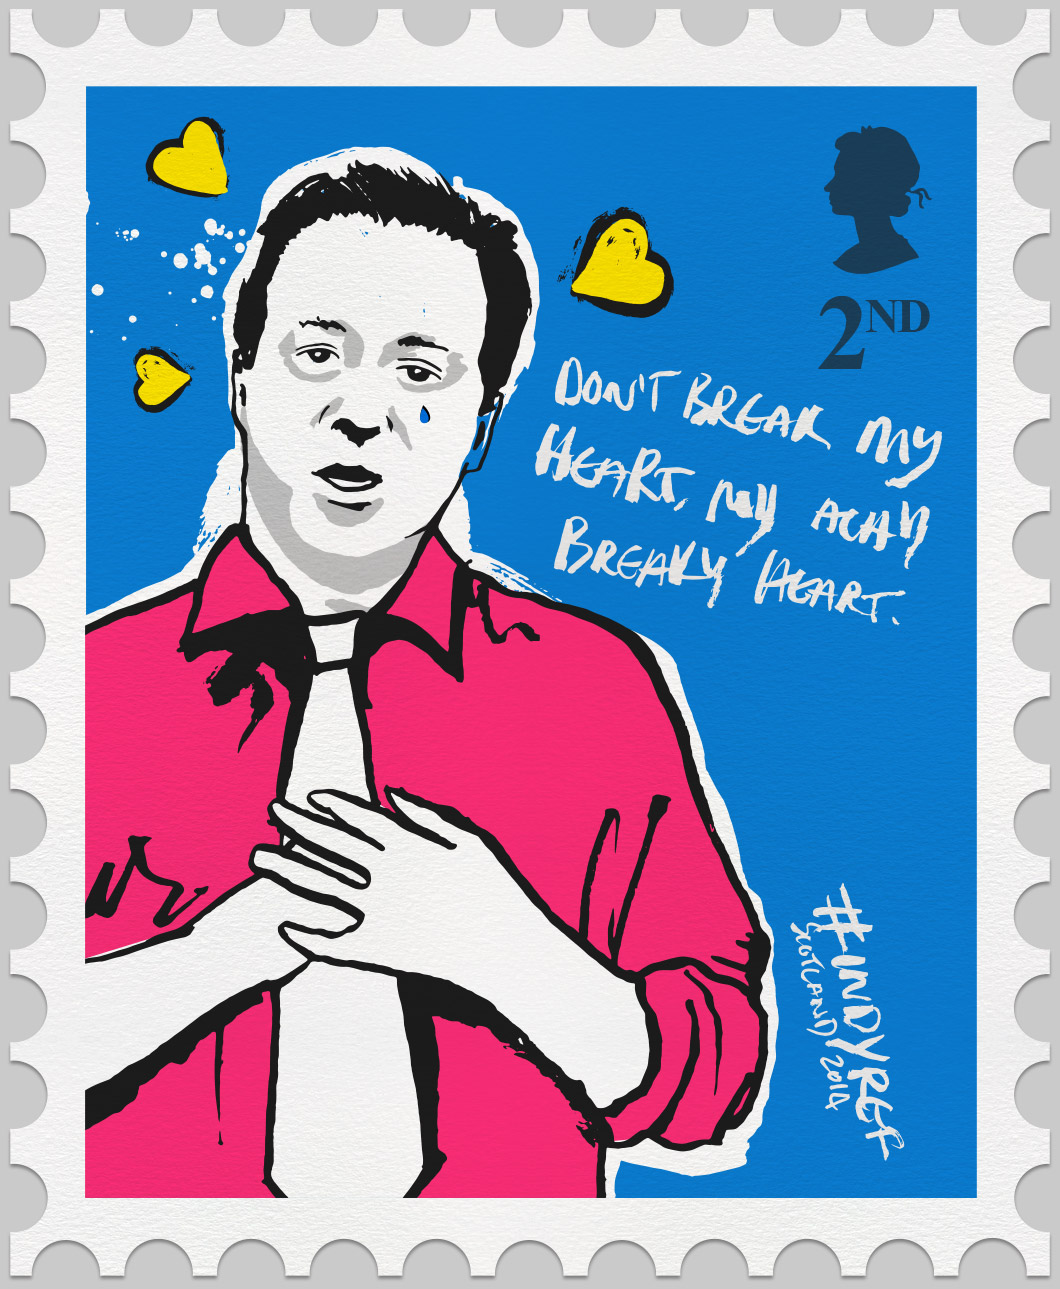 2ND
DON'T BREAK MY
HEART, MY ACHY
BREAKY HEART.
#INDYREF
SCOTLAND 2014